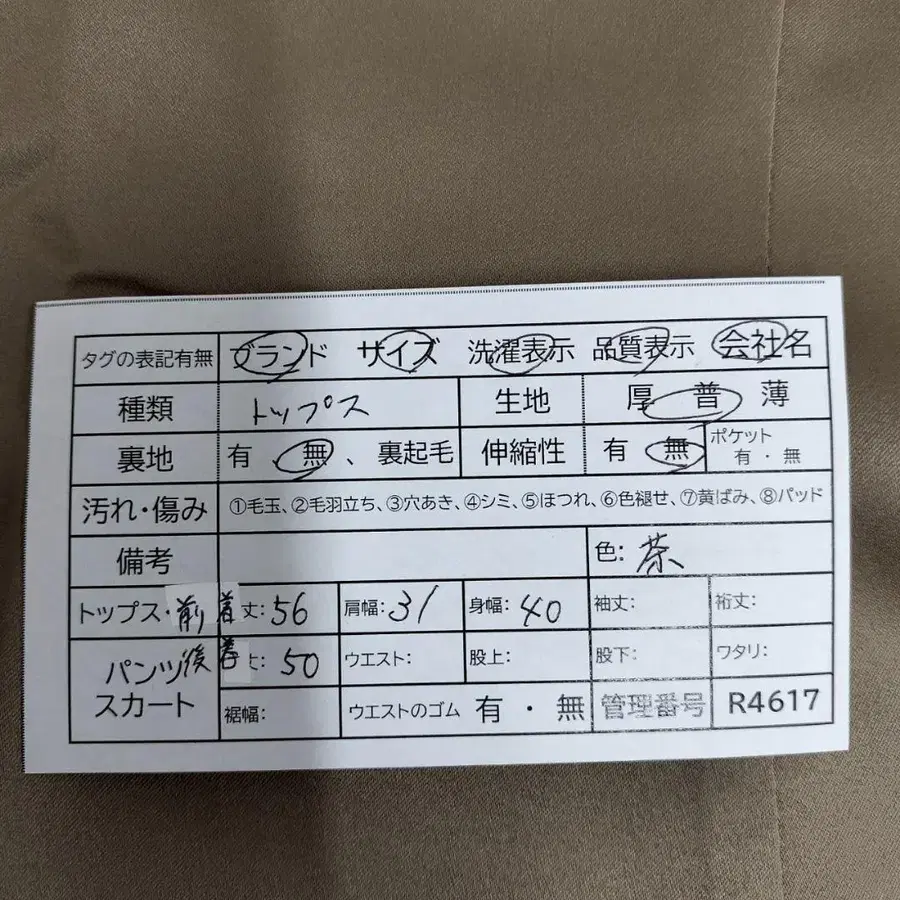 タグの表記有無 ブランド サイズ 洗濯表示 品質表示 会社名
種類 トップス 生地 厚 普 薄
裏地 有 、無 、裏起毛 伸縮性 有 無 ポケット 有・無
汚れ・傷み ①毛玉、②毛羽立ち、③穴あき、④シミ、⑤ほつれ、⑥色褪せ、⑦黄ばみ、⑧パッド
備考 色: 茶
トップス・前 着丈:56 肩幅:31 身幅:40 袖丈: 裄丈:
後 着丈:50 ウエスト: 股上: 股下: ワタリ:
パンツ
スカート 裾幅: ウエストのゴム 有・無 管理番号 R4617